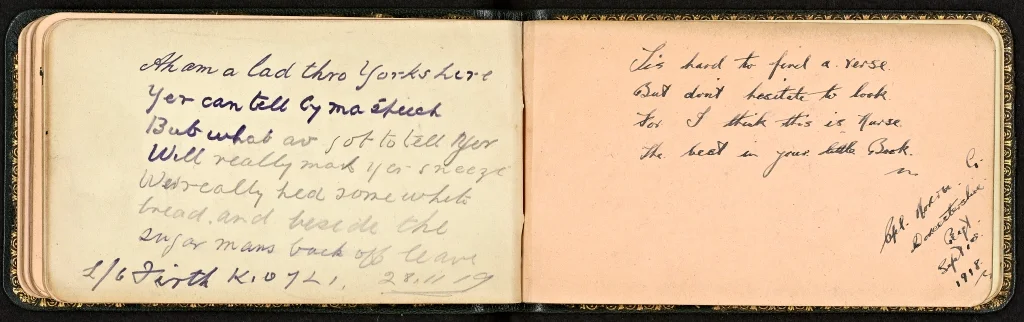 Ah am a lad thro Yorkshire
Yer can tell by ma speech
But what av got to tell Yer
Will really mak Yer sneeze
We really hed some white
bread and beside the
sugar mans back off leave
L/C Firth K.O.Y.L.I. 28.11.19
Tis hard to find a verse
But don't hesitate to look
For I think this is Nurse
The best in your little Book.
Sept 10.
1918.